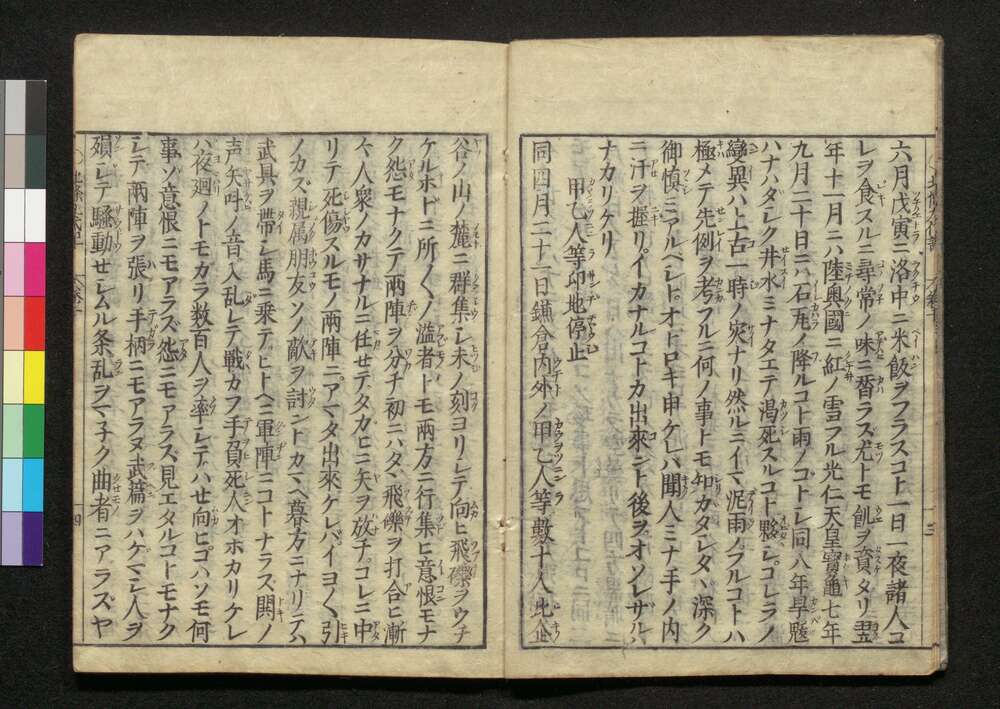 六月戊寅ニ洛中ニ米飯ヲフラスコト一日一夜諸人コ
レヲ食スルニ尋常ノ味ニ替ラズ尤トモ飢ヲ資タリ翌
年十一月ニハ陸奥國ニ紅ノ雪フル光仁天皇寳龜七年
九月二十日ニハ石瓦ノ降ルコト雨ノゴトシ同八年旱魃
ハナハダシク井水ミナタエテ渇死スルコト夥シコレラノ
變異ハ上古一時ノ災ナリ然ルニイマ泥雨ノフルコトハ
極メテ先例ヲ考フルニ何ノ事トモ知カタシタヽ深ク
御慎ミアルベシトオトロキ申ケレハ聞人ミナ手ノ内
ニ汗ヲ握リイカナルコトカ出來ント後ヲオソレサルハ
ナカリケリ
甲乙人等印地停止
同四月二十一日鎌倉内外ノ甲乙人等數十人比企
谷ノ山ノ麓ニ群集シ未ノ刻ヨリシテ向ヒ飛礫ヲウチ
ケルホドニ所〱ノ溢者トモ両方ニ行集ヒ意恨モナ
ク怨モナクテ両陣ヲ分チ初ニハタヽ飛礫ヲ打合ヒ漸
々人衆ノカサナルニ任せテタカヒニ矢ヲ放チコレニ中
リテ死傷スルモノ両陣ニアマタ出來ケレバイヨ〱引
ノカズ親属朋友ソノ敵ヲ討ントカマヘ暮方ニナリテハ
武具ヲ帯シ馬ニ乗テヒトヘニ軍陣ニコトナラス閧ノ
声矢叫ノ音入乱レテ戦カフ手負死人オホカリケレ
ハ夜廻ノトモカラ数百人ヲ率シテハせ向ヒコハソモ何
事ソ意恨ニモアラズ怨ニモアラズ見エタルコトモナク
シテ両陣ヲ張リ手柄ニモアラヌ武篇ヲハゲマシ人ヲ
殞シテ騒動せシムル条乱ヲマ子ク曲者ニアラズヤ